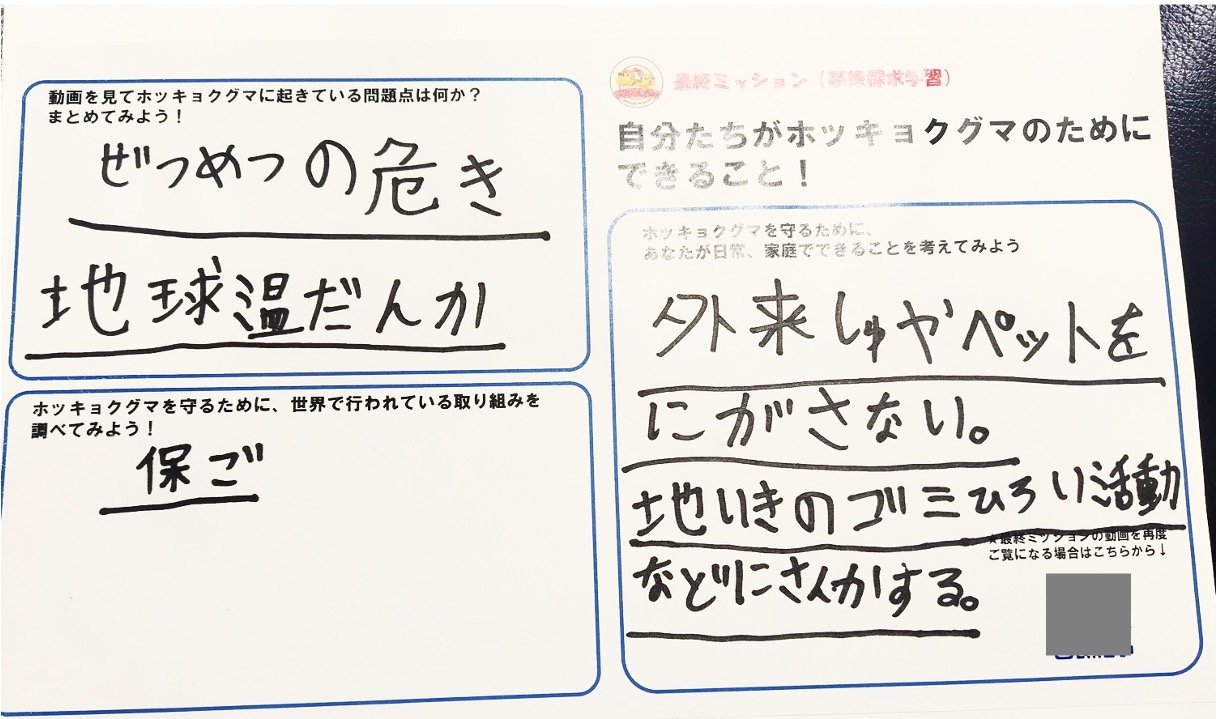 動画を見てホッキョクグマに起きている問題点は何か？
まとめてみよう！
ぜつめつの危き
地球温だんか
ホッキョクグマを守るために、世界で行われている取り組みを
調べてみよう！
保ご
最終ミッション（事後探求学習）
自分たちがホッキョクグマのために
できること！
ホッキョクグマを守るために、
あなたが日常、家庭でできることを考えてみよう
外来しゅやペットを
にがさない。
地いきのゴミひろい活動
などにさんかする。
★最終ミッションの動画を再度
ご覧になる場合はこちらから↓